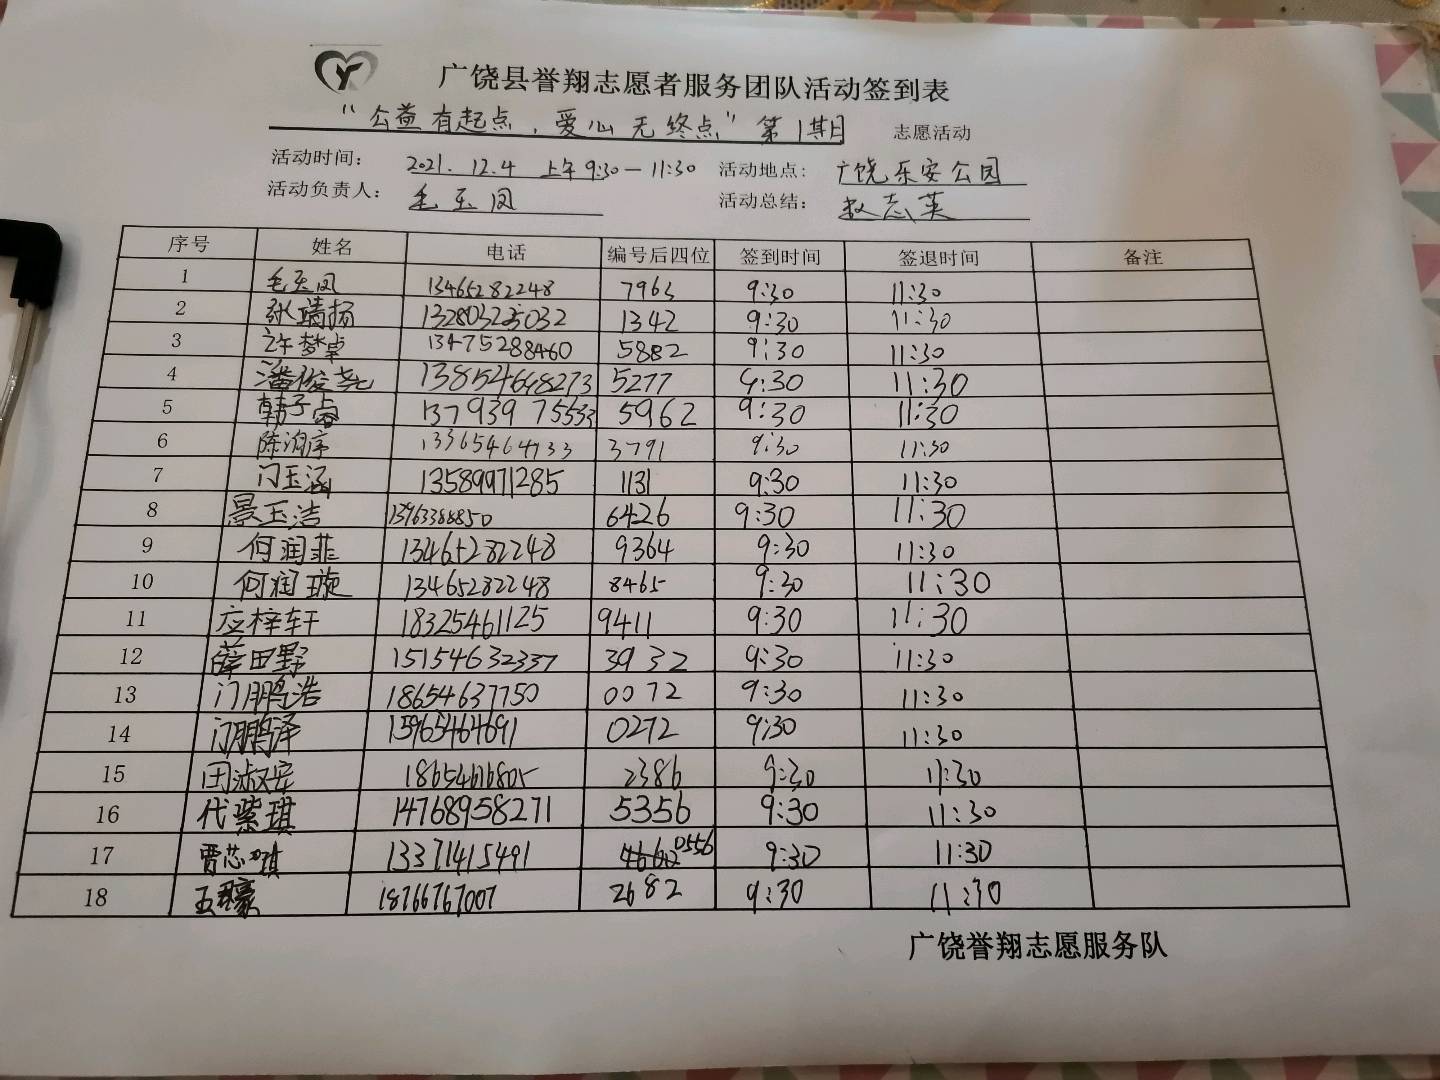 广饶县誉翔志愿者服务团队活动签到表
“公益有起点，爱心无终点”第1期 志愿活动
活动时间： 2021.12.4 上午9:30—11:30 活动地点： 广饶乐安公园
活动负责人： 毛玉凤 活动总结： 赵志英
序号 姓名 电话 编号后四位 签到时间 签退时间 备注
1 毛玉凤 13465282248 7963 9:30 11:30
2 张靖扬 1342 9:30 11:30
3 许梦卓 13475288460 5882 9:30 11:30
4 潘俊尧 13854648273 5277 9:30 11:30
5 韩子睿 13793975533 5962 9:30 11:30
6 13365464733 3791 9:30 11:30
7 门玉涵 13589971285 1131 9:30 11:30
8 景玉洁 13963388850 6426 9:30 11:30
9 何润菲 13465282248 9364 9:30 11:30
10 何润璇 13465282248 8465 9:30 11:30
11 应梓轩 18325461125 9411 9:30 11:30
12 薛田野 15154632337 3932 9:30 11:30
13 门鹏浩 18654637750 0072 9:30 11:30
14 门鹏泽 15965464691 0272 9:30 11:30
15 田淑安 18654616805 2386 9:30 11:30
16 代紫琪 14768958271 5356 9:30 11:30
17 贾芯琪 13371415491 0556 9:30 11:30
18 18766767007 2682 9:30 11:30
广饶誉翔志愿服务队